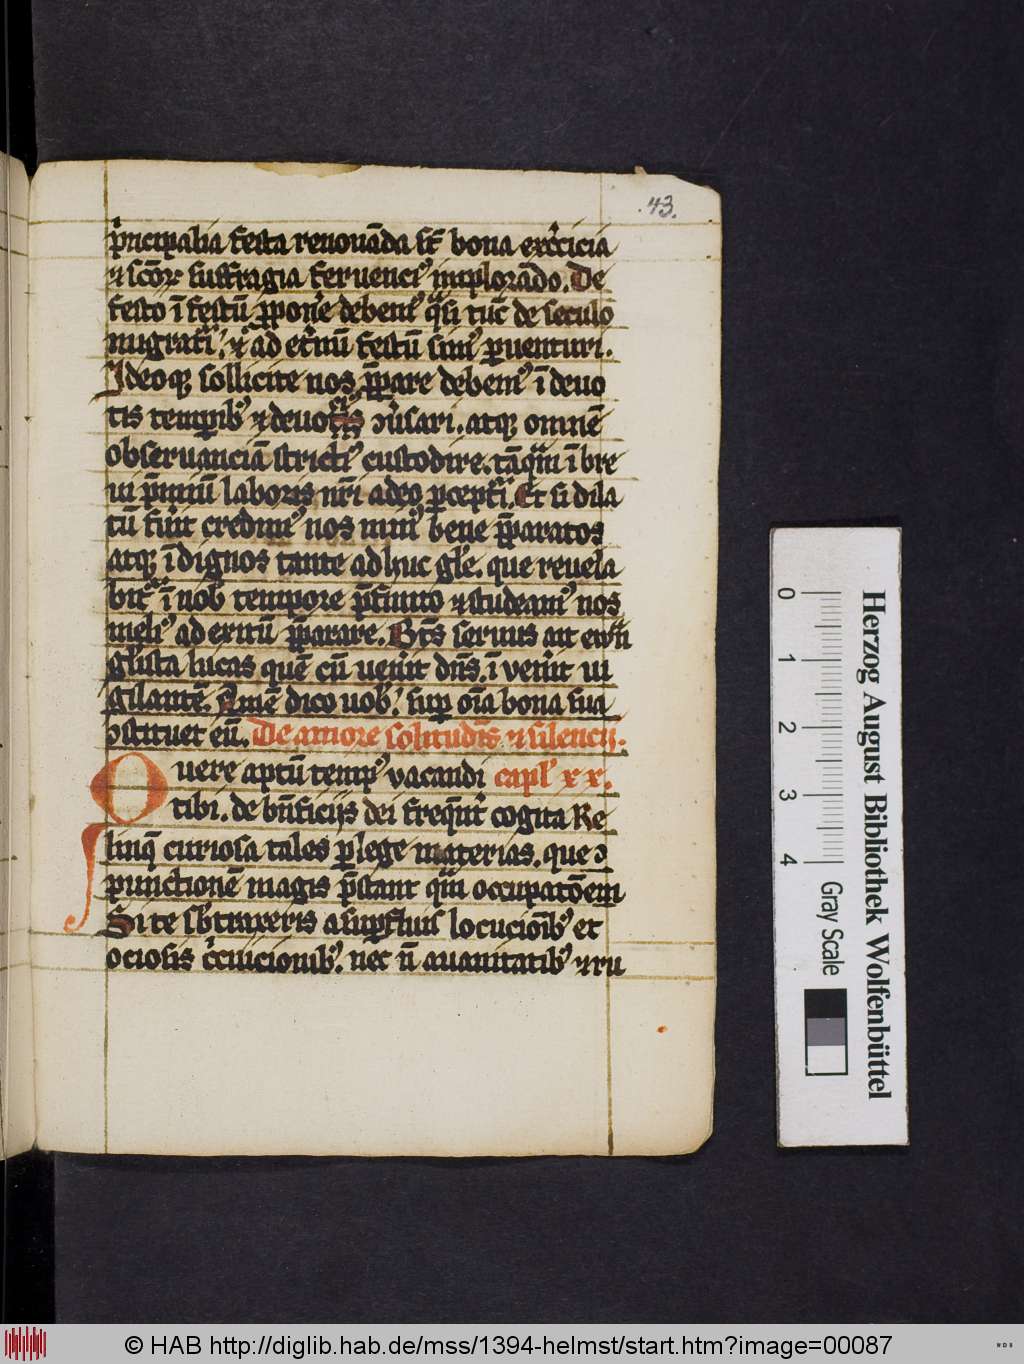 .43.
p͛ncipalia festa renouāda st̄ bona ex͛cicia
⁊ scōꝝ suffragia feruenciꝰ implorādo. De
festo ī festū ꝓpon͛e debemꝰ qͣsi tūc de seculo
migraťi. ⁊ ad et͛nū festū simꝰ ꝑuenturi.
Ideoqꝫ sollicite nos p̄ꝑare debemꝰ ī deuo
tis temꝑibꝰ ⁊ deuociꝰ ↄu͛sari. atqꝫ omnē
obseruanciā strictiꝰ custodire. tāqͣm ī bre
ui p̄miū laboris nr̄i a deo ꝑcepťi. Et si dila
tū fu͛it credimꝰ nos minꝰ bene p̄ꝑaratos
atqꝫ īdignos tante adhuc gl̄e. que reuela
bit᷑ ī nobꝭ tempore p̄finito ⁊ studeamꝰ nos
meliꝰ ad exitū p̄ꝑare. Bt̄s seruus ait ewā
gl̓ista lucas quē cū uen͛it dn̄s. īuen͛it ui
gilantē. Amē dico uobꝭ. suꝑ oīa bona sua
ↄstituet eū. De amore solitudīs ⁊ silencij.
Quere aptū tempꝰ vacandi capl̓ xx.
tibi. de bn̄ficijs dei freqn̄t͛ cogita Re
linq̄ curiosa tales ꝑlege materias. que ↄ
punctionē magis p̄stant qͣm occupatōem
Si te sb̓traxeris a suꝑfluis locucioībꝰ et
ociosis c͛cuicionibꝰ. nec n̄ a uanitatibꝰ ⁊ ru
Herzog August Bibliothek Wolfenbüttel
0 1 2 3 4 Gray Scale
© HAB http://diglib.hab.de/mss/1394-helmst/start.htm?image=00087